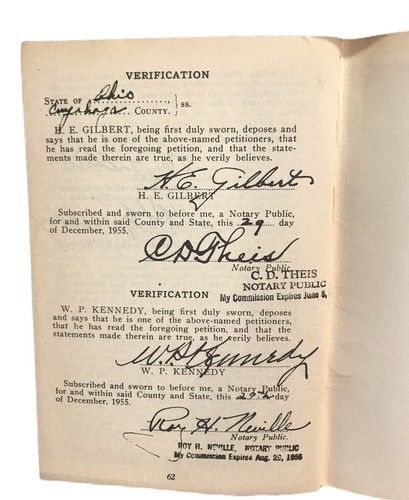 VERIFICATION
STATE OF Ohio
Cuyahoga COUNTY. } ss.
H. E. GILBERT, being first duly sworn, deposes and
says that he is one of the above-named petitioners, that
he has read the foregoing petition, and that the state-
ments made therein are true, as he verily believes.
H. E. Gilbert
H. E. GILBERT
Subscribed and sworn to before me, a Notary Public,
for and within said County and State, this 29 day
of December, 1955.
C D Theis
Notary Public.
C. D. THEIS
NOTARY PUBLIC
My Commission Expires June 5,
VERIFICATION
W. P. KENNEDY, being first duly sworn, deposes
and says that he is one of the above-named petitioners,
that he has read the foregoing petition, and that the
statements made therein are true, as he verily believes.
W. P. Kennedy
W. P. KENNEDY
Subscribed and sworn to before me, a Notary Public,
for and within said County and State, this day
of December, 1955.
Roy H. Neville
Notary Public.
ROY H. NEVILLE, NOTARY PUBLIC
My Commission Expires Aug. 29, 1956
62